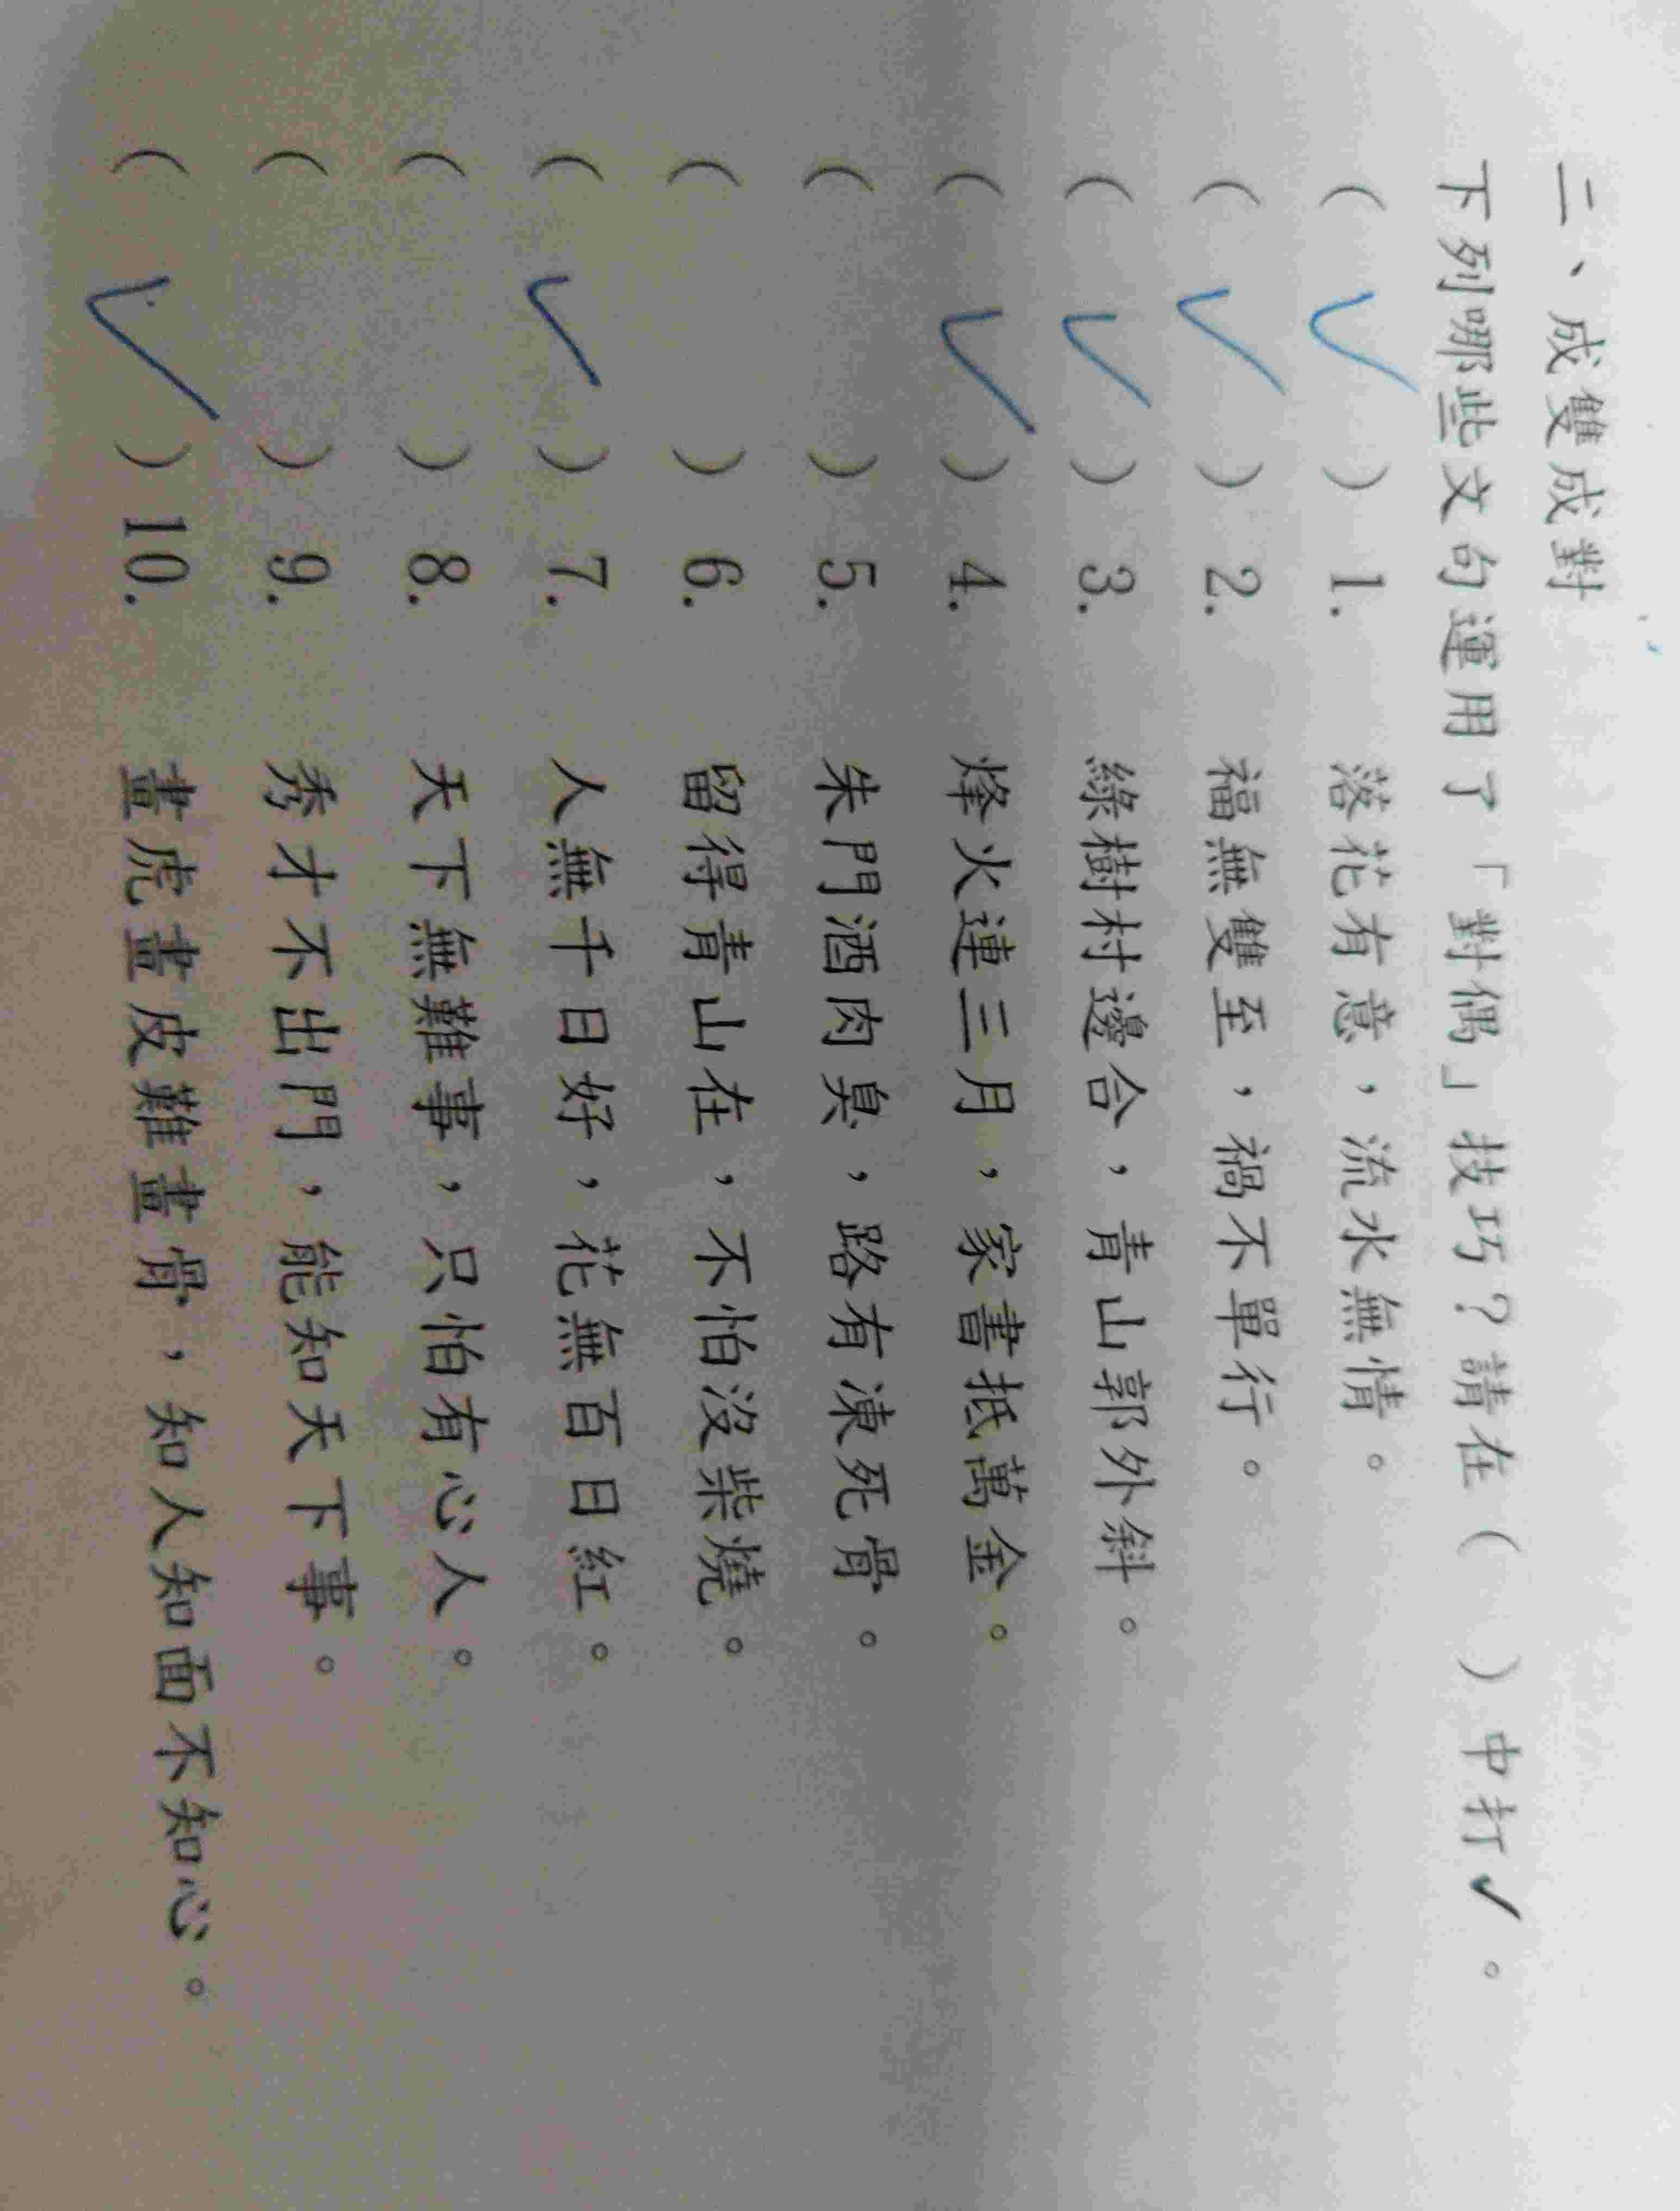 二、成雙成對
下列哪些文句運用了「對偶」技巧？請在（ ）中打✓。
（ ✓ ）1. 落花有意，流水無情。
（ ✓ ）2. 福無雙至，禍不單行。
（ ✓ ）3. 綠樹村邊合，青山郭外斜。
（ ✓ ）4. 烽火連三月，家書抵萬金。
（ ）5. 朱門酒肉臭，路有凍死骨。
（ ）6. 留得青山在，不怕沒柴燒。
（ ✓ ）7. 人無千日好，花無百日紅。
（ ）8. 天下無難事，只怕有心人。
（ ）9. 秀才不出門，能知天下事。
（ ✓ ）10. 畫虎畫皮難畫骨，知人知面不知心。